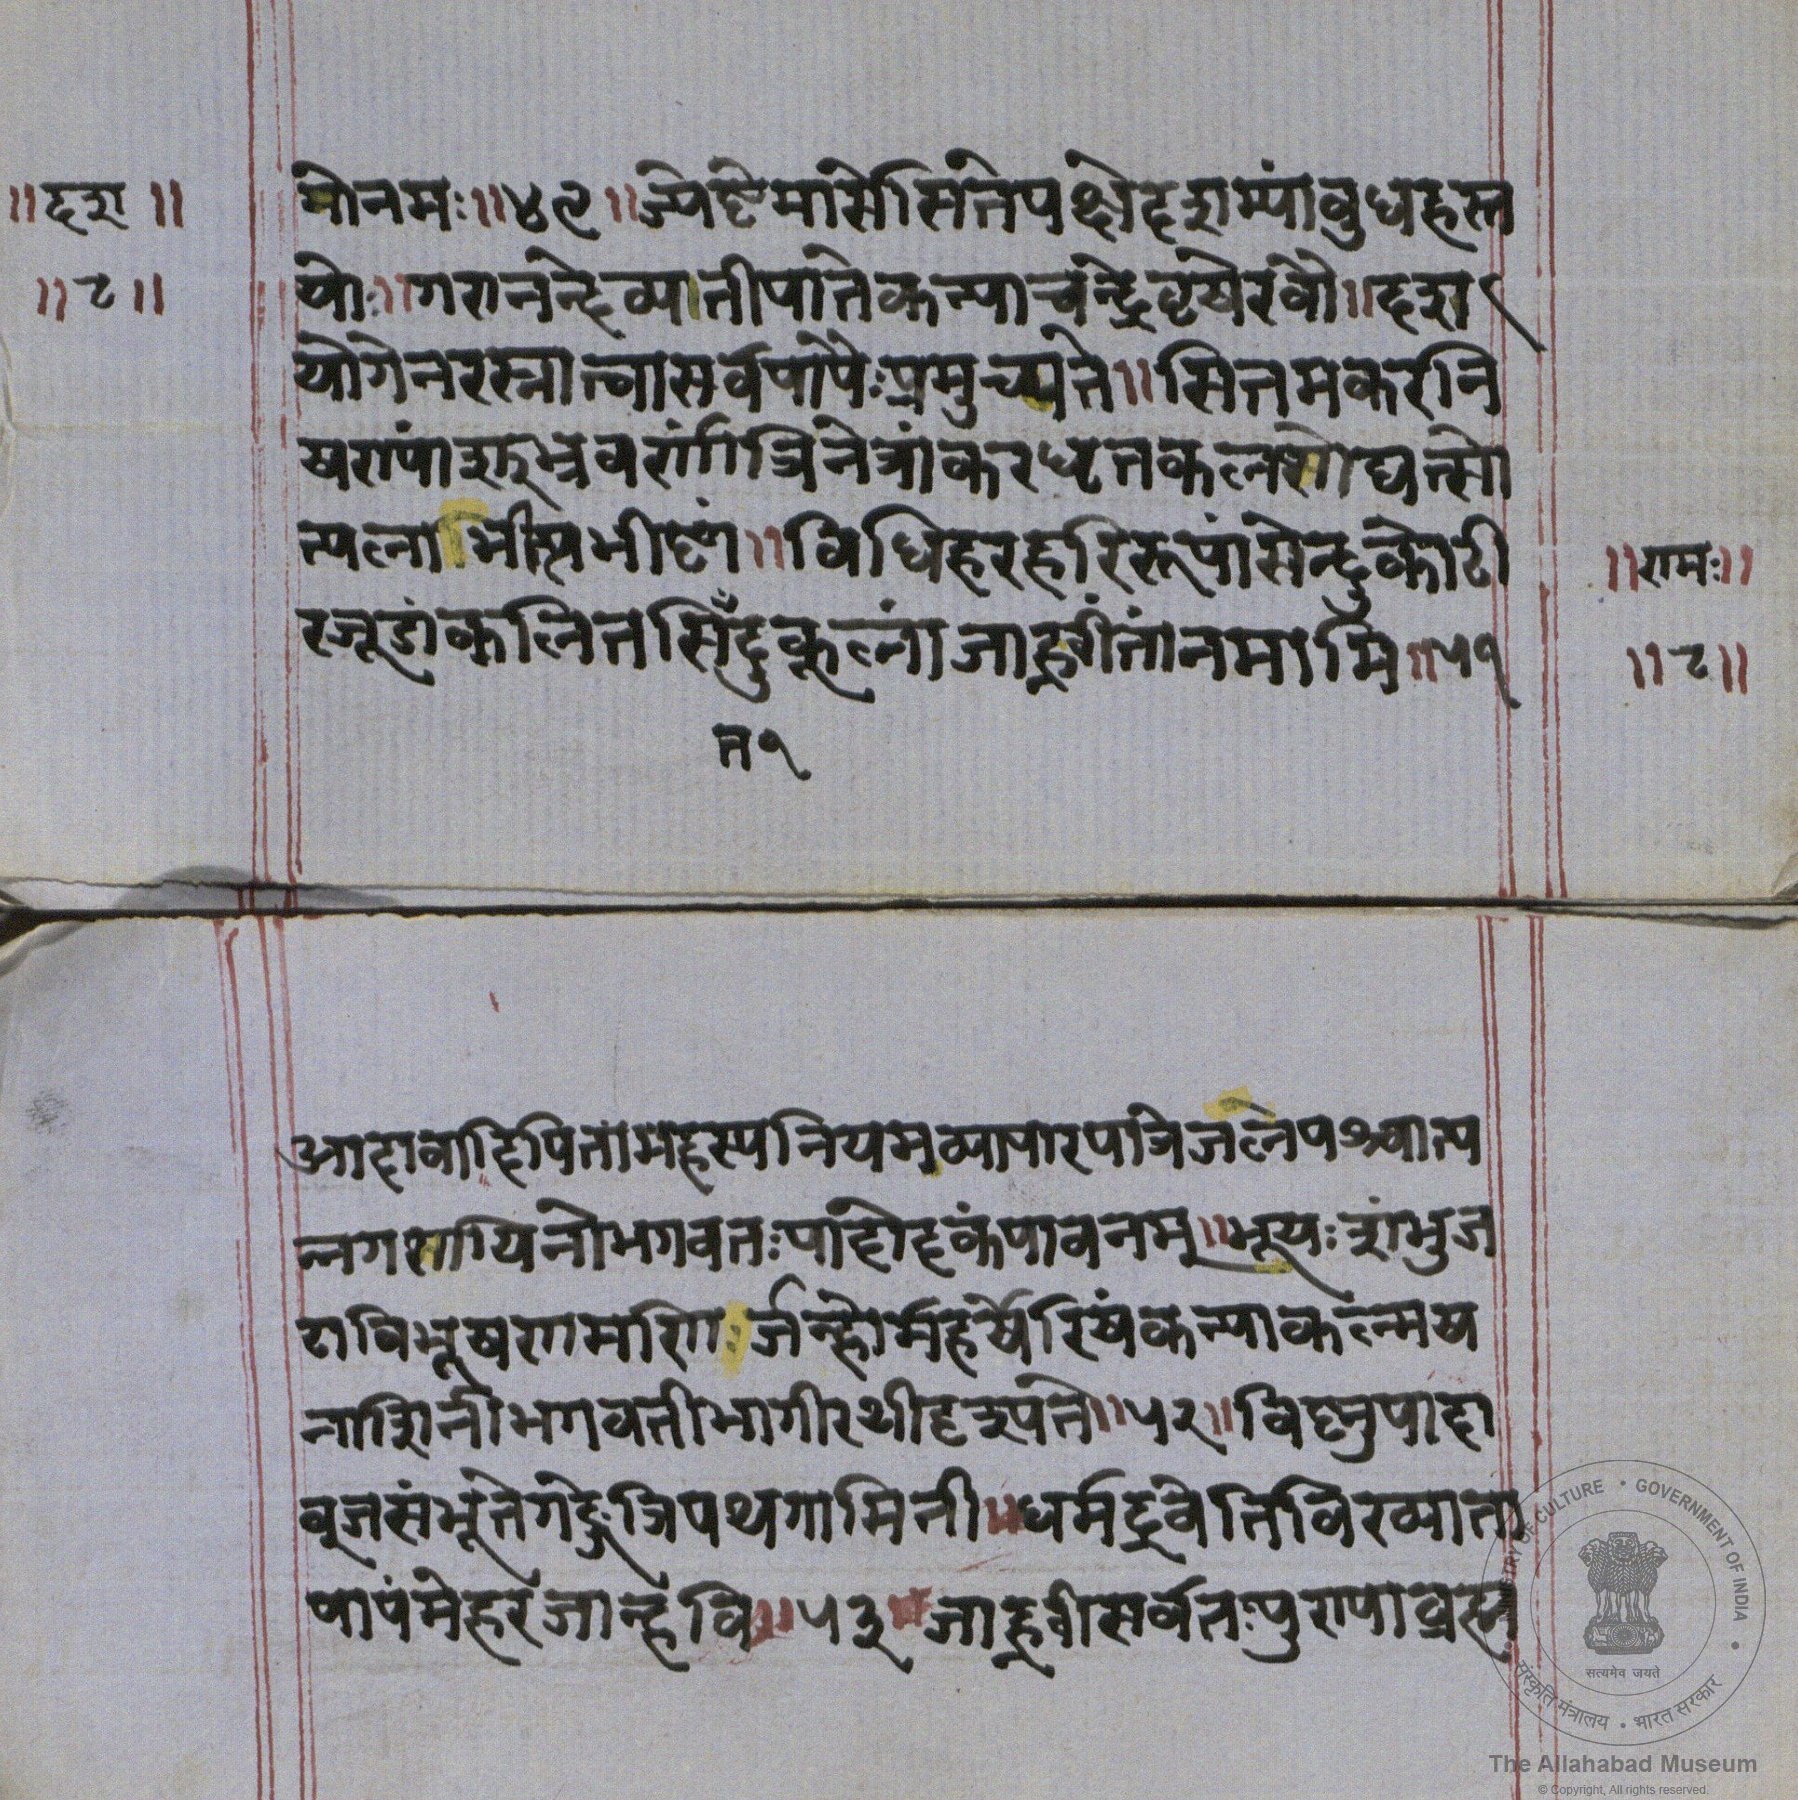 ॥दश॥
॥८॥
मोनमः॥४९॥ज्येष्टेमासेसितेपक्षेदशम्यांबुधहस्त
योः॥गरानन्देव्यातीपातेकन्याचन्द्रेवृषेरवौ॥दश
योगेनरस्नात्वासर्वपापैःप्रमुच्यते॥सितमकरनि
षणांशुभ्रवर्णांत्रिनेत्रांकरधृतकलशोद्यत्सो
त्पलाभीत्यभीष्टां॥विधिहरहरिरूपांसेन्दुकोटी
रजूडांकलितसिँदुकूलांजाह्नवींतांनमामि॥५१
त१
॥रामः॥
॥८॥
आदावादिपितामहस्यनियमव्यापारपात्रेजलेपश्चात्प
न्नगशायिनोभगवतःपादोदकंपावनम्॥भूयःशंभुज
टाविभूषणमणिःर्जन्होर्महर्षेरियंकन्याकल्मष
नाशिनीभगवतीभागीरथीदृश्यते॥५२॥विष्णुपादा
ब्जसंभूतेगङ्गेत्रिपथगामिनी॥धर्मद्रवेतिविख्याता
पापंमेहरजान्हवि॥५३॥जाह्नवीसर्वतःपुण्याब्रह्म
सत्यमेव जयते
MINISTRY OF CULTURE • GOVERNMENT OF INDIA
संस्कृति मंत्रालय • भारत सरकार
The Allahabad Museum
© Copyright, All rights reserved.